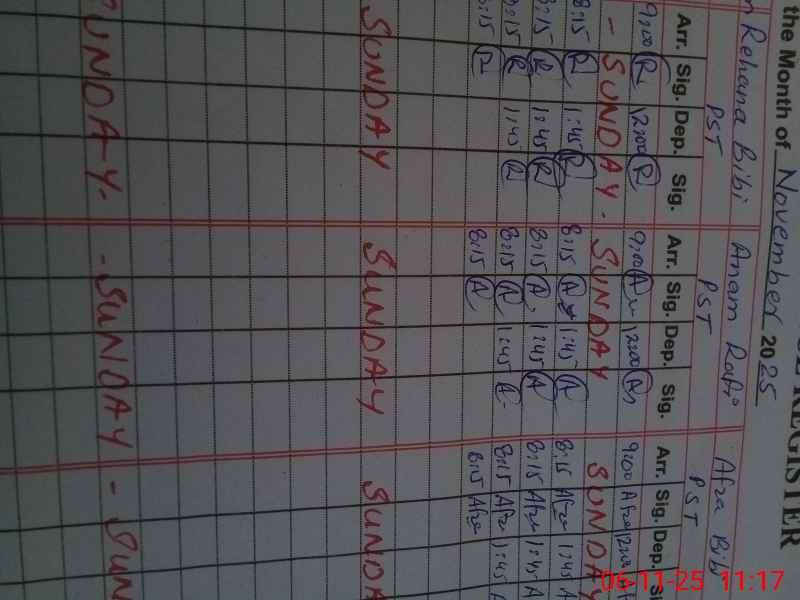 REGISTER
the Month of November 2025
Rehana Bibi Anam Rafi Afza Bibi
PST PST PST
Arr. Sig. Dep. Sig. Arr. Sig. Dep. Sig. Arr. Sig. Dep.
9:00 R 12:00 R 9:00 A 12:00 A 9:00 Afza 12:00
- SUNDAY. SUNDAY SUNDAY
8:15 R 1:45 R 8:15 A 1:45 A 8:15 Afza 1:45 A
8:15 R 1:45 R 8:15 A 1:45 A 8:15 Afza 1:45 A
8:15 R 1:45 R 8:15 A 1:45 A 8:15 Afza 1:45 A
8:15 R 8:15 A 8:15 Afza
SUNDAY SUNDAY SUNDA
SUNDAY. - SUNDAY - SUN
06-11-25 11:17